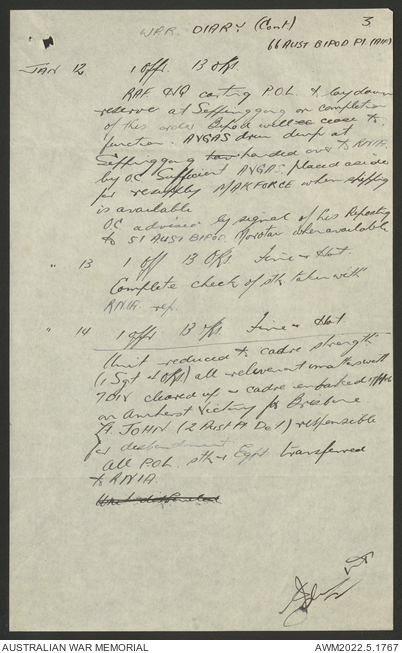 WAR DIARY (Cont) 3
66 AUST BIPOD Pl. (AIF)
JAN 12 1 offr. 13 ORs
RAF. D/Q carting P.O.L. & lay down
reserve at Seppinggang on completion
of this order Bipod will cease to
function. AVGAS drum dump at
Seppinggang handed over to RNIA.
by O.C. Sufficient AVGAS. placed aside
for resupply MAKFORCE when shipping
is available
O.C advised by signal of his Reporting
to 51 AUST BIPOD. Morotai when available
" 13 1 off 13 ORs Fine & Hot.
Complete check of stk taken with
RNIA. rep.
" 14 1 offr. 13 ORs. Fine & Hot
Unit reduced to cadre strength
(1 Sgt 2 ORs) all relevant matters with
7 DIV cleared up & cadre embarked
on Amherst Victory for Brisbane
Lt. JOHN (2 Aust Det) responsible
for disbandment
All P.O.L. stk & Eqpt transferred
to RNIA.
AUSTRALIAN WAR MEMORIAL AWM2022.5.1767